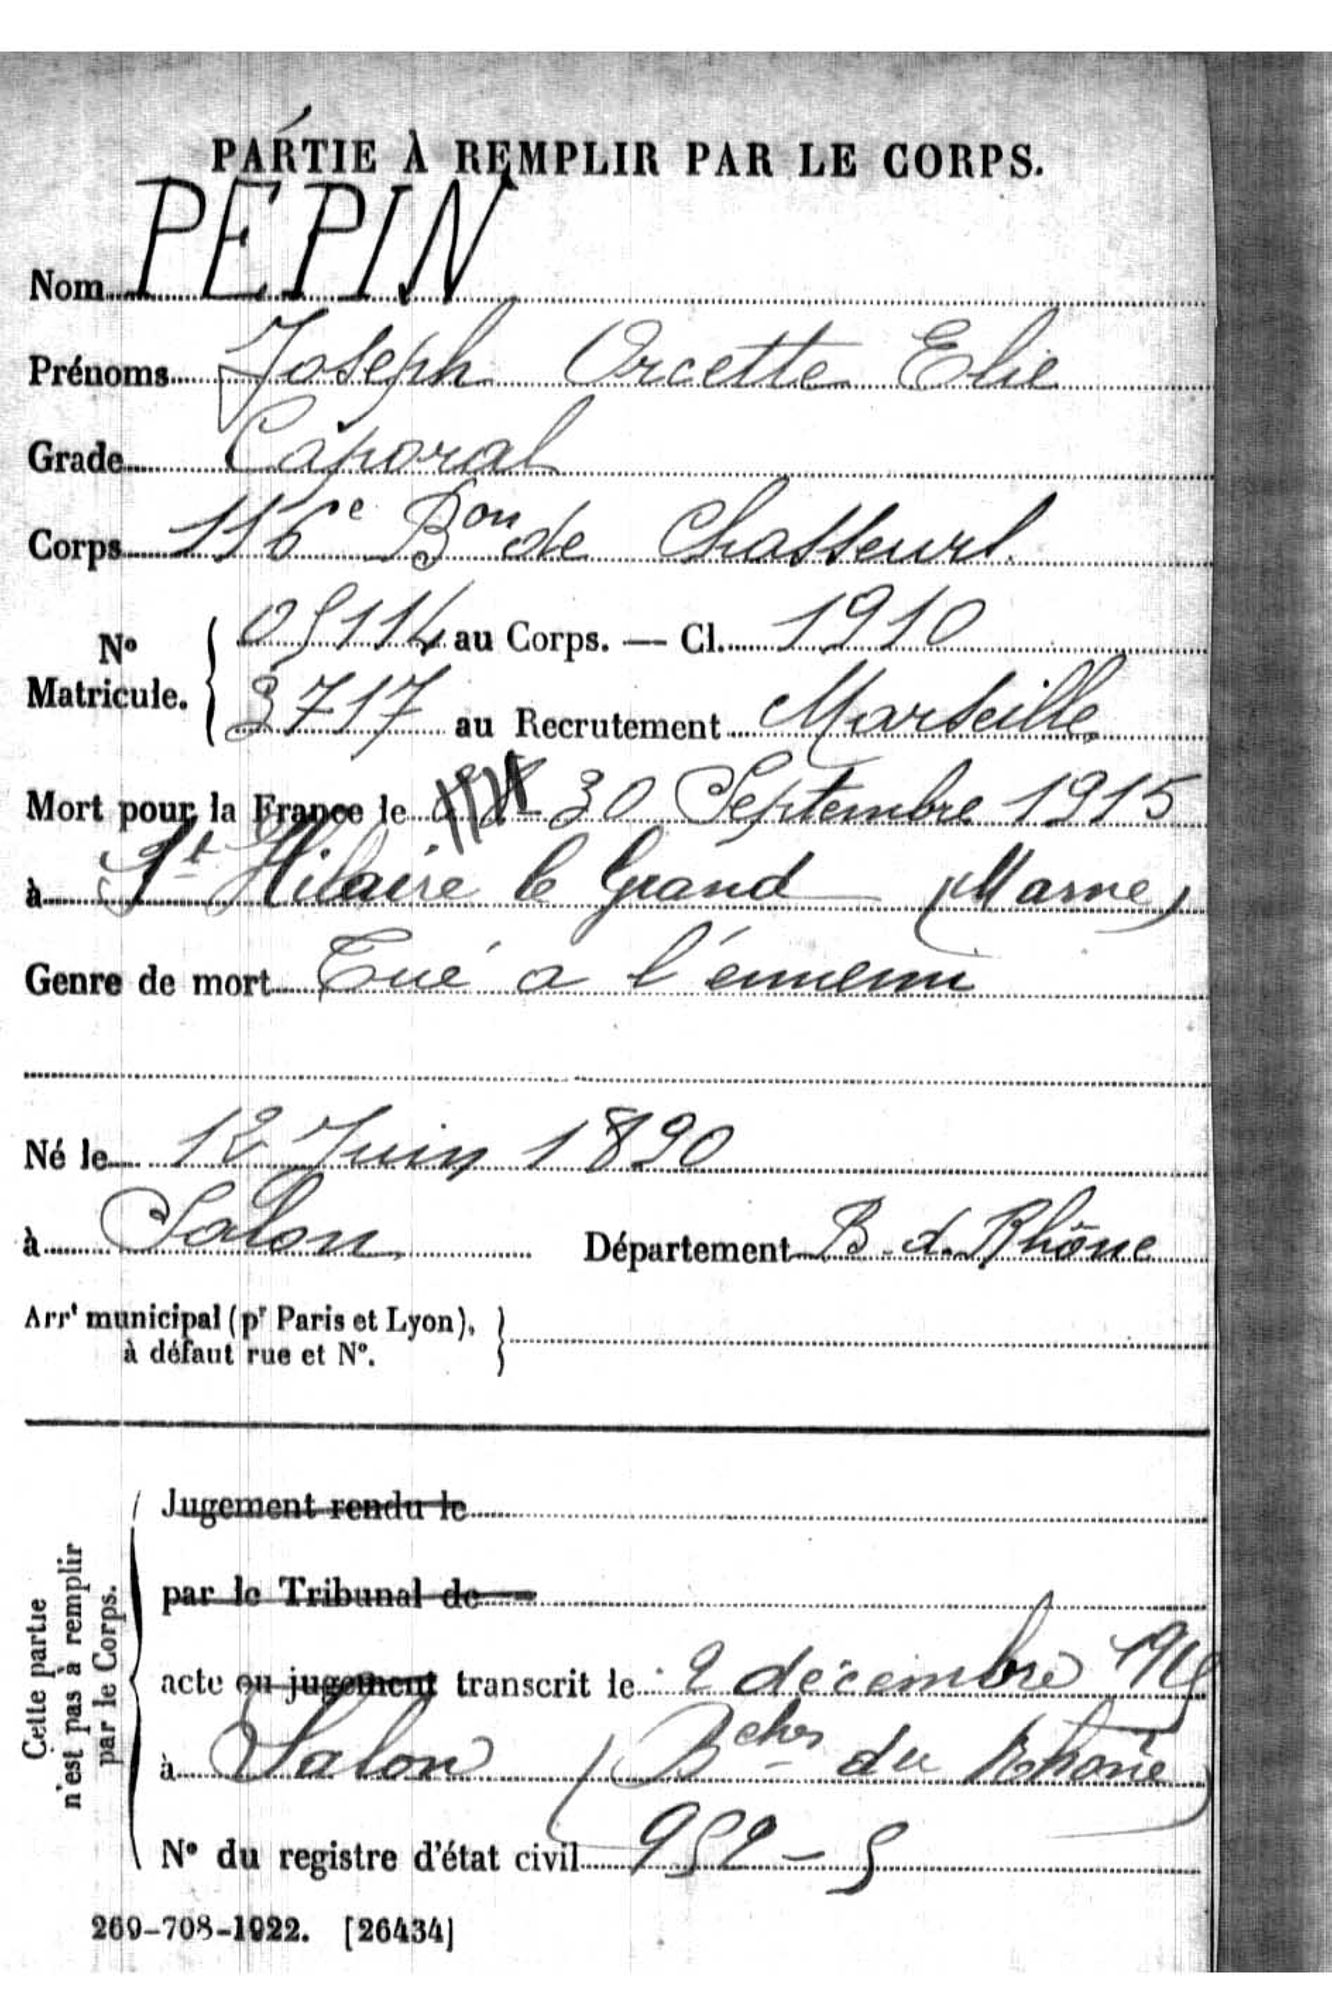 PARTIE À REMPLIR PAR LE CORPS.
Nom PÉPIN
Prénoms Joseph Orcette Elie
Grade Caporal
Corps 116e Bon de Chasseurs.
No Matricule. { 05114 au Corps. — Cl. 1910
3717 au Recrutement Marseille
Mort pour la France le 30 Septembre 1915
à St Hilaire le Grand (Marne)
Genre de mort Tué a l'ennemi
Né le 12 Juin 1890
à Salon Département B. d. Rhône
Arrt municipal (pr Paris et Lyon), }
à défaut rue et No.
Cette partie
n'est pas à remplir
par le Corps.
Jugement rendu le
par le Tribunal de
acte ou jugement transcrit le 2 décembre 1915
à Salon (Bches du Rhône)
No du registre d'état civil 952 – 5
269-708-1922. [26434]